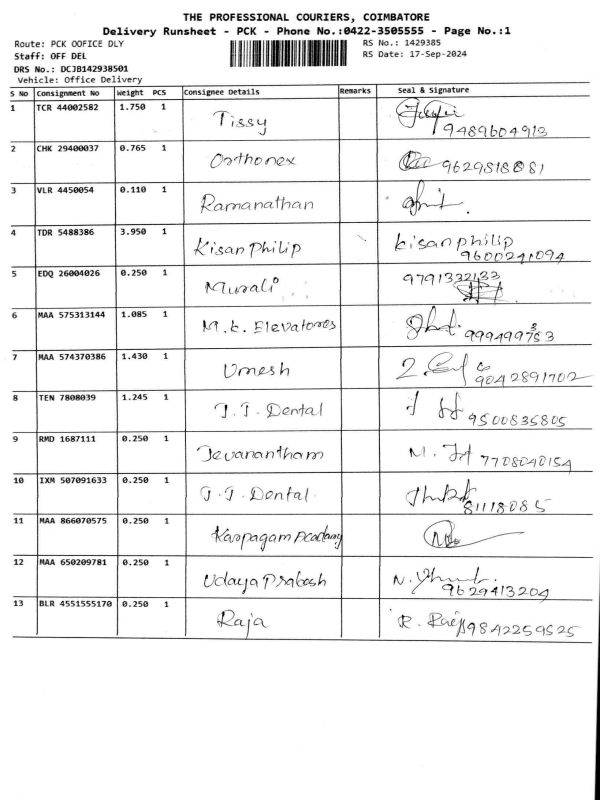 THE PROFESSIONAL COURIERS, COIMBATORE
Delivery Runsheet - PCK - Phone No.:0422-3505555 - Page No.:1
Route: PCK OOFICE DLY
RS No.: 1429385
Staff: OFF DEL
RS Date: 17-Sep-2024
DRS No.: DCJB142938501
Vehicle: Office Delivery
S No Consignment No Weight PCS Consignee Details Remarks Seal & Signature
1 TCR 44002582 1.750 1 Tissy
9489604913
2 CHK 29400037 0.765 1 Orthonex 9629818081
3 VLR 4450054 0.110 1 Ramanathan
4 TDR 5488386 3.950 1 Kisan Philip kisan philip
9600241094
5 EDQ 26004026 0.250 1 Murali 9791332133
6 MAA 575313144 1.085 1 M.K. Elevatores
7 MAA 574370386 1.430 1 Umesh 9042891702
8 TEN 7808039 1.245 1 J.J. Dental 9500835805
9 RMD 1687111 0.250 1 Jevanantham 7708040154
10 IXM 507091633 0.250 1 J.J. Dental.
81118085
11 MAA 866070575 0.250 1 Karpagam Acadamy
12 MAA 650209781 0.250 1 Udaya Prabash
9629413204
13 BLR 4551555170 0.250 1 Raja R. Raja 9842259525